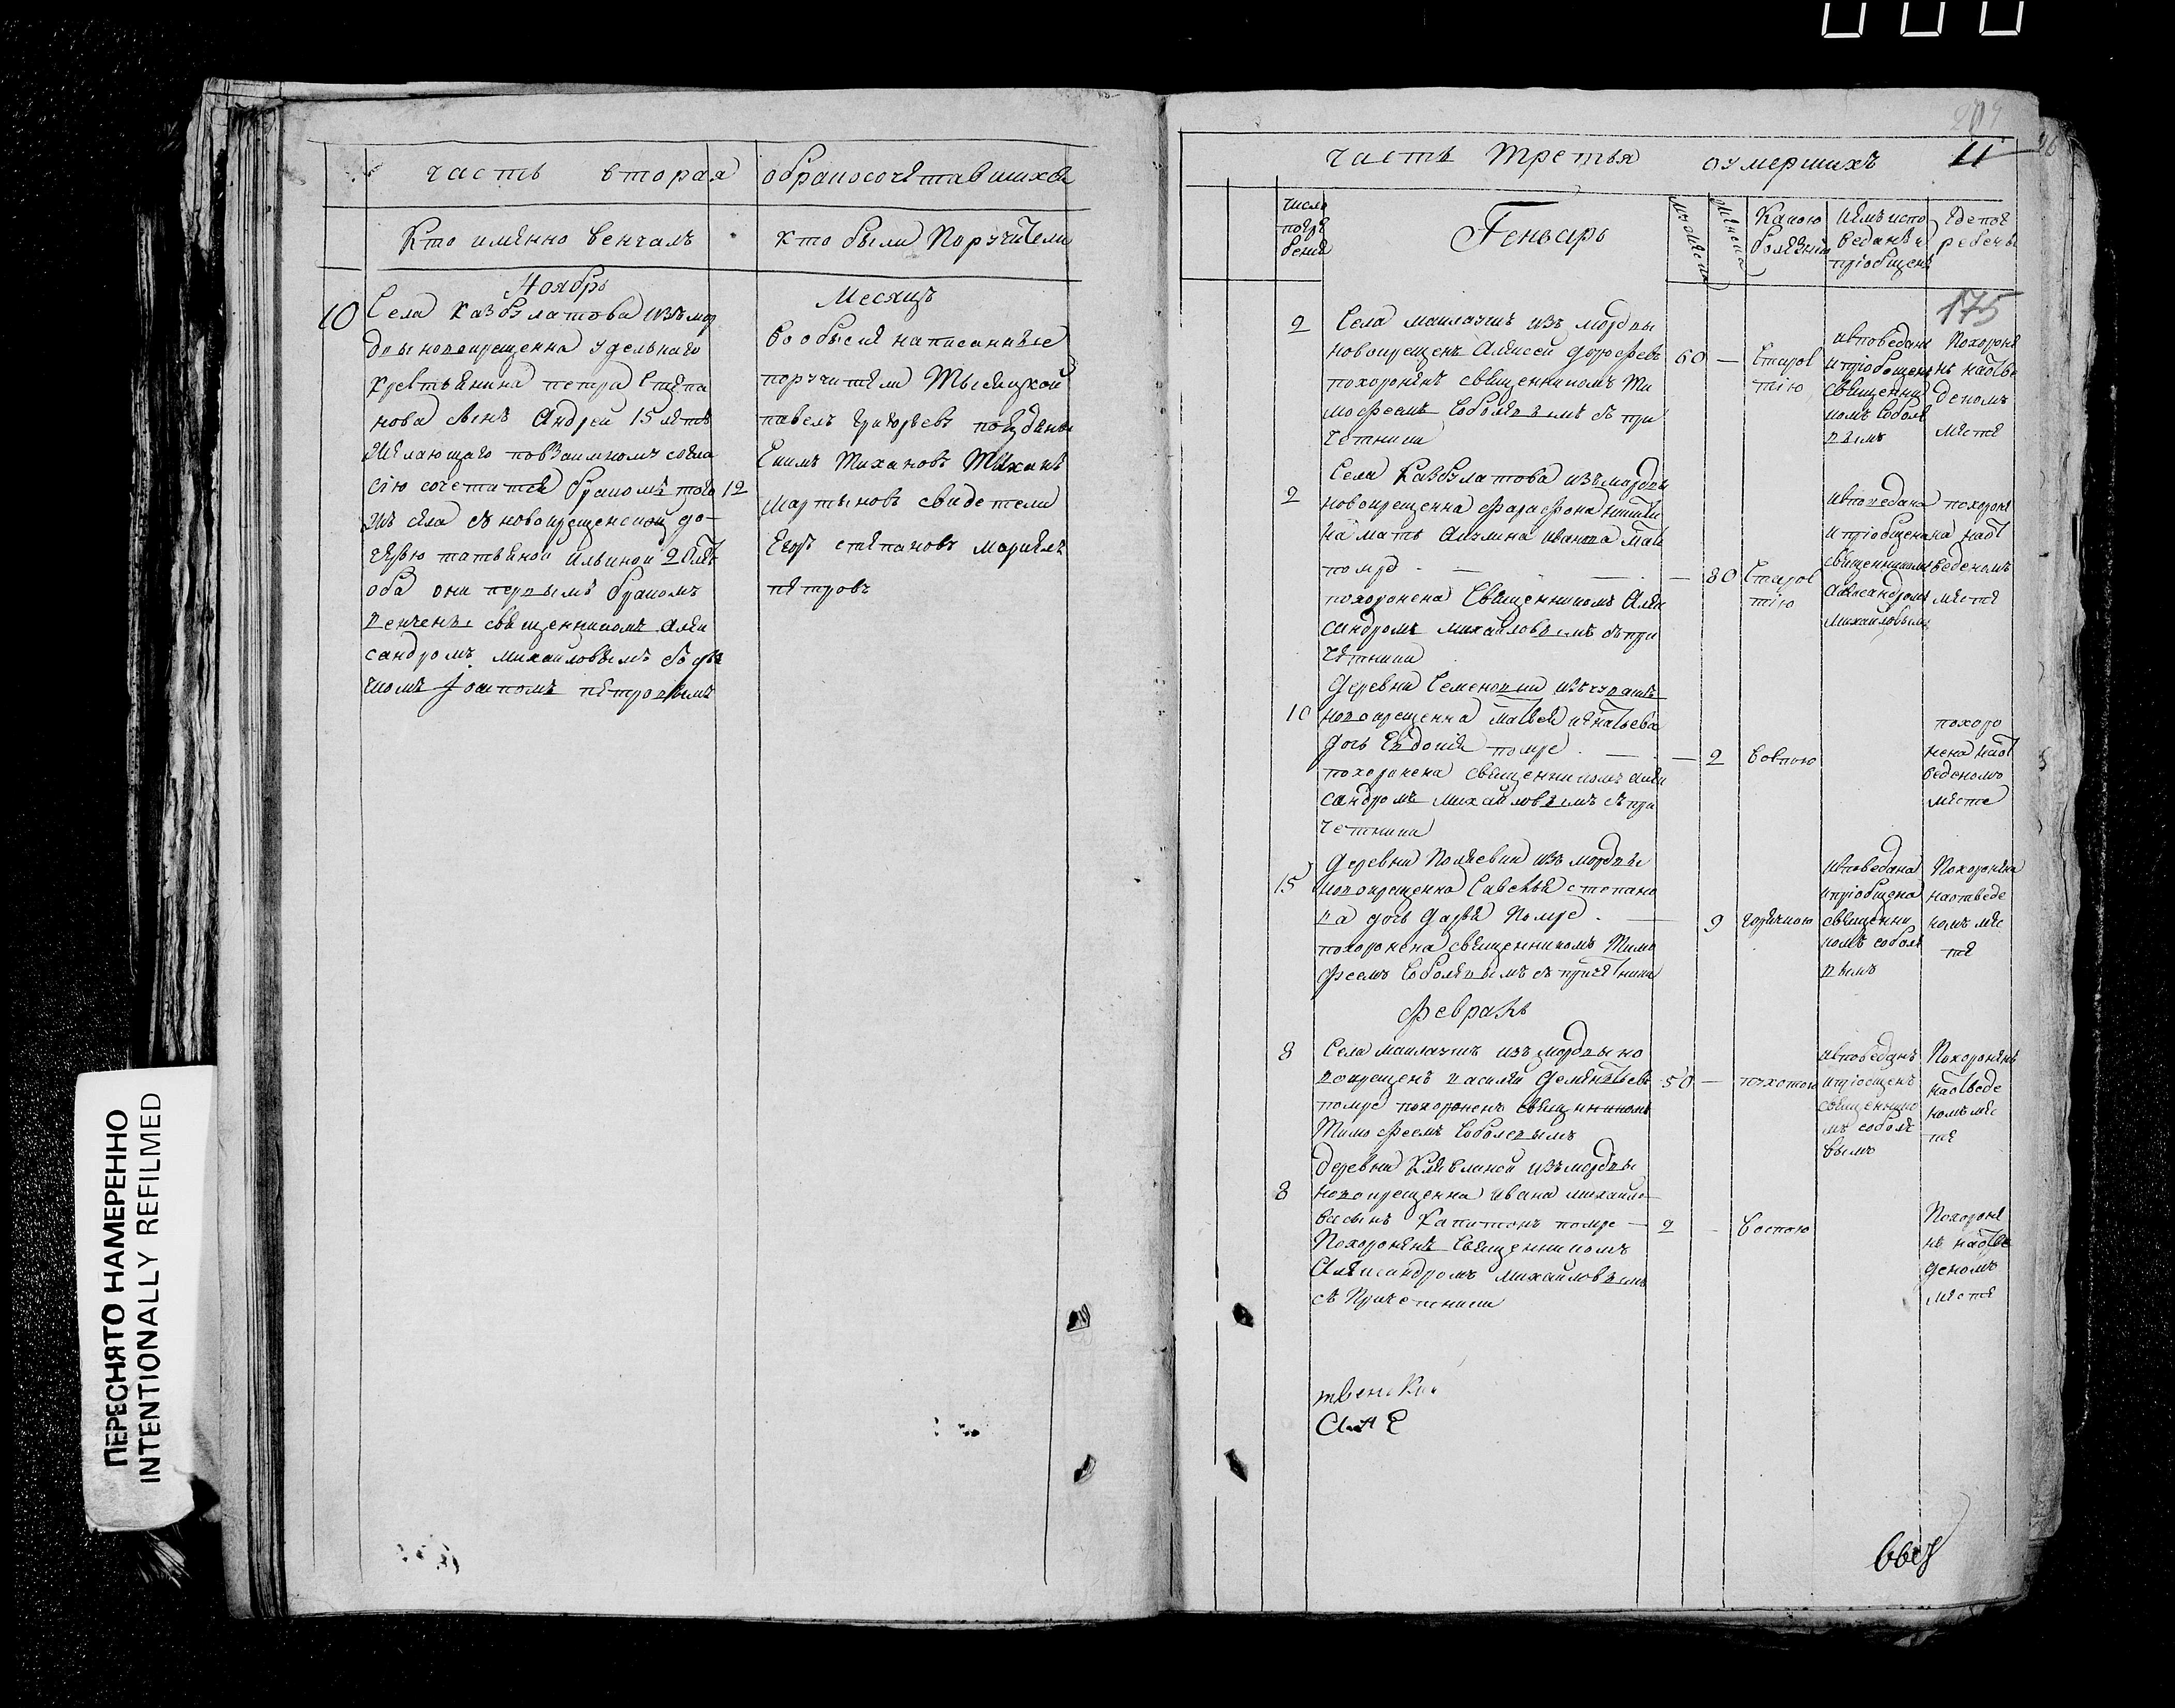 часть вторая обракосочетавшихся
Кто имянно венчалъ
кто были Поручители
Ноябрь
Месяцъ
10
Села Казбулатова изъ мор
двы новокрещенна удельнаго
крестьянина петра Степа
нова сынъ Андрей 15 летъ
желающаго повзаимному согла
сію сочетатся бракомъ того 12
жъ села съ новокрещенской до-
черью татьяной ильиной
оба они первымъ бракомъ
венчены священникомъ алек
сандромъ михайловымъ
петровымъ
вообыске написанные
поручители Тысяцкой
павелъ григорьевъ
Екимъ
мартыновъ свидетели
Егоръ степановъ
петровъ
часть третья оумершихъ
11
число
погре
бения
Генварь
мужеска
женска
Какою
болезнію
кемъ испо
веданъ и
пріобщенъ
Где погребены
175
2
Села маклаушъ изъ мордвы
новокрещенъ Алексей
похороненъ священникомъ Ти
мофеемъ Соболевымъ съ при
четники
60 —
Старос
тію
исповеданъ
и пріобщенъ
священни
комъ Соболе
вымъ
Похороне
нъ наотве
деномъ
месте
2
Села Казбулатова изъ мордвы
новокрещенна
на мать акулина иванова
помре
похоронена Священникомъ Алек
сандромъ михайловымъ съ при
четники
— 80
Старос
тію
исповедана
и пріобщена
священникомъ
Александромъ
михайловымъ
похороне
на наот
веденомъ
месте
10
Деревни Семеновки изъ чувашъ
новокрещенна матвея игнатьева
дочь Евдокия помре
похоронена священникомъ алек
сандромъ михайловымъ съ при
четники
— 2
Воспою
похоро
нена наот
веденомъ
месте
15
Деревни изъ мордвы
новокрещенна Савелья степано
ва дочь Дарья помре
похоронена священникомъ Тимо
феемъ Соболевымъ съ причетники
9
горячкою
исповедана
и пріобщена
священни
комъ соболе
вымъ
Похоронена
наотведе
номъ мес
те
февраль
8
Села маклаушъ изъ мордвы но
вокрещенъ василей дементьевъ
помре похороненъ священникомъ
Тимофеемъ Соболевымъ
50 —
чехоткою
исповеданъ
и пріобщенъ
священнико
мъ соболе
вымъ
Похороненъ
наотведе
номъ мес
те
8
Деревни Клявлиной изъ мордвы
новокрещенна ивана михайло
ва сынъ Капитонъ помре
Похороненъ Священникомъ
Александромъ михайловымъ
съ Причетники
2 —
Воспою
Похороне
нъ наотве
деномъ
месте
ПЕРЕСНЯТО НАМЕРЕННО
INTENTIONALLY REFILMED